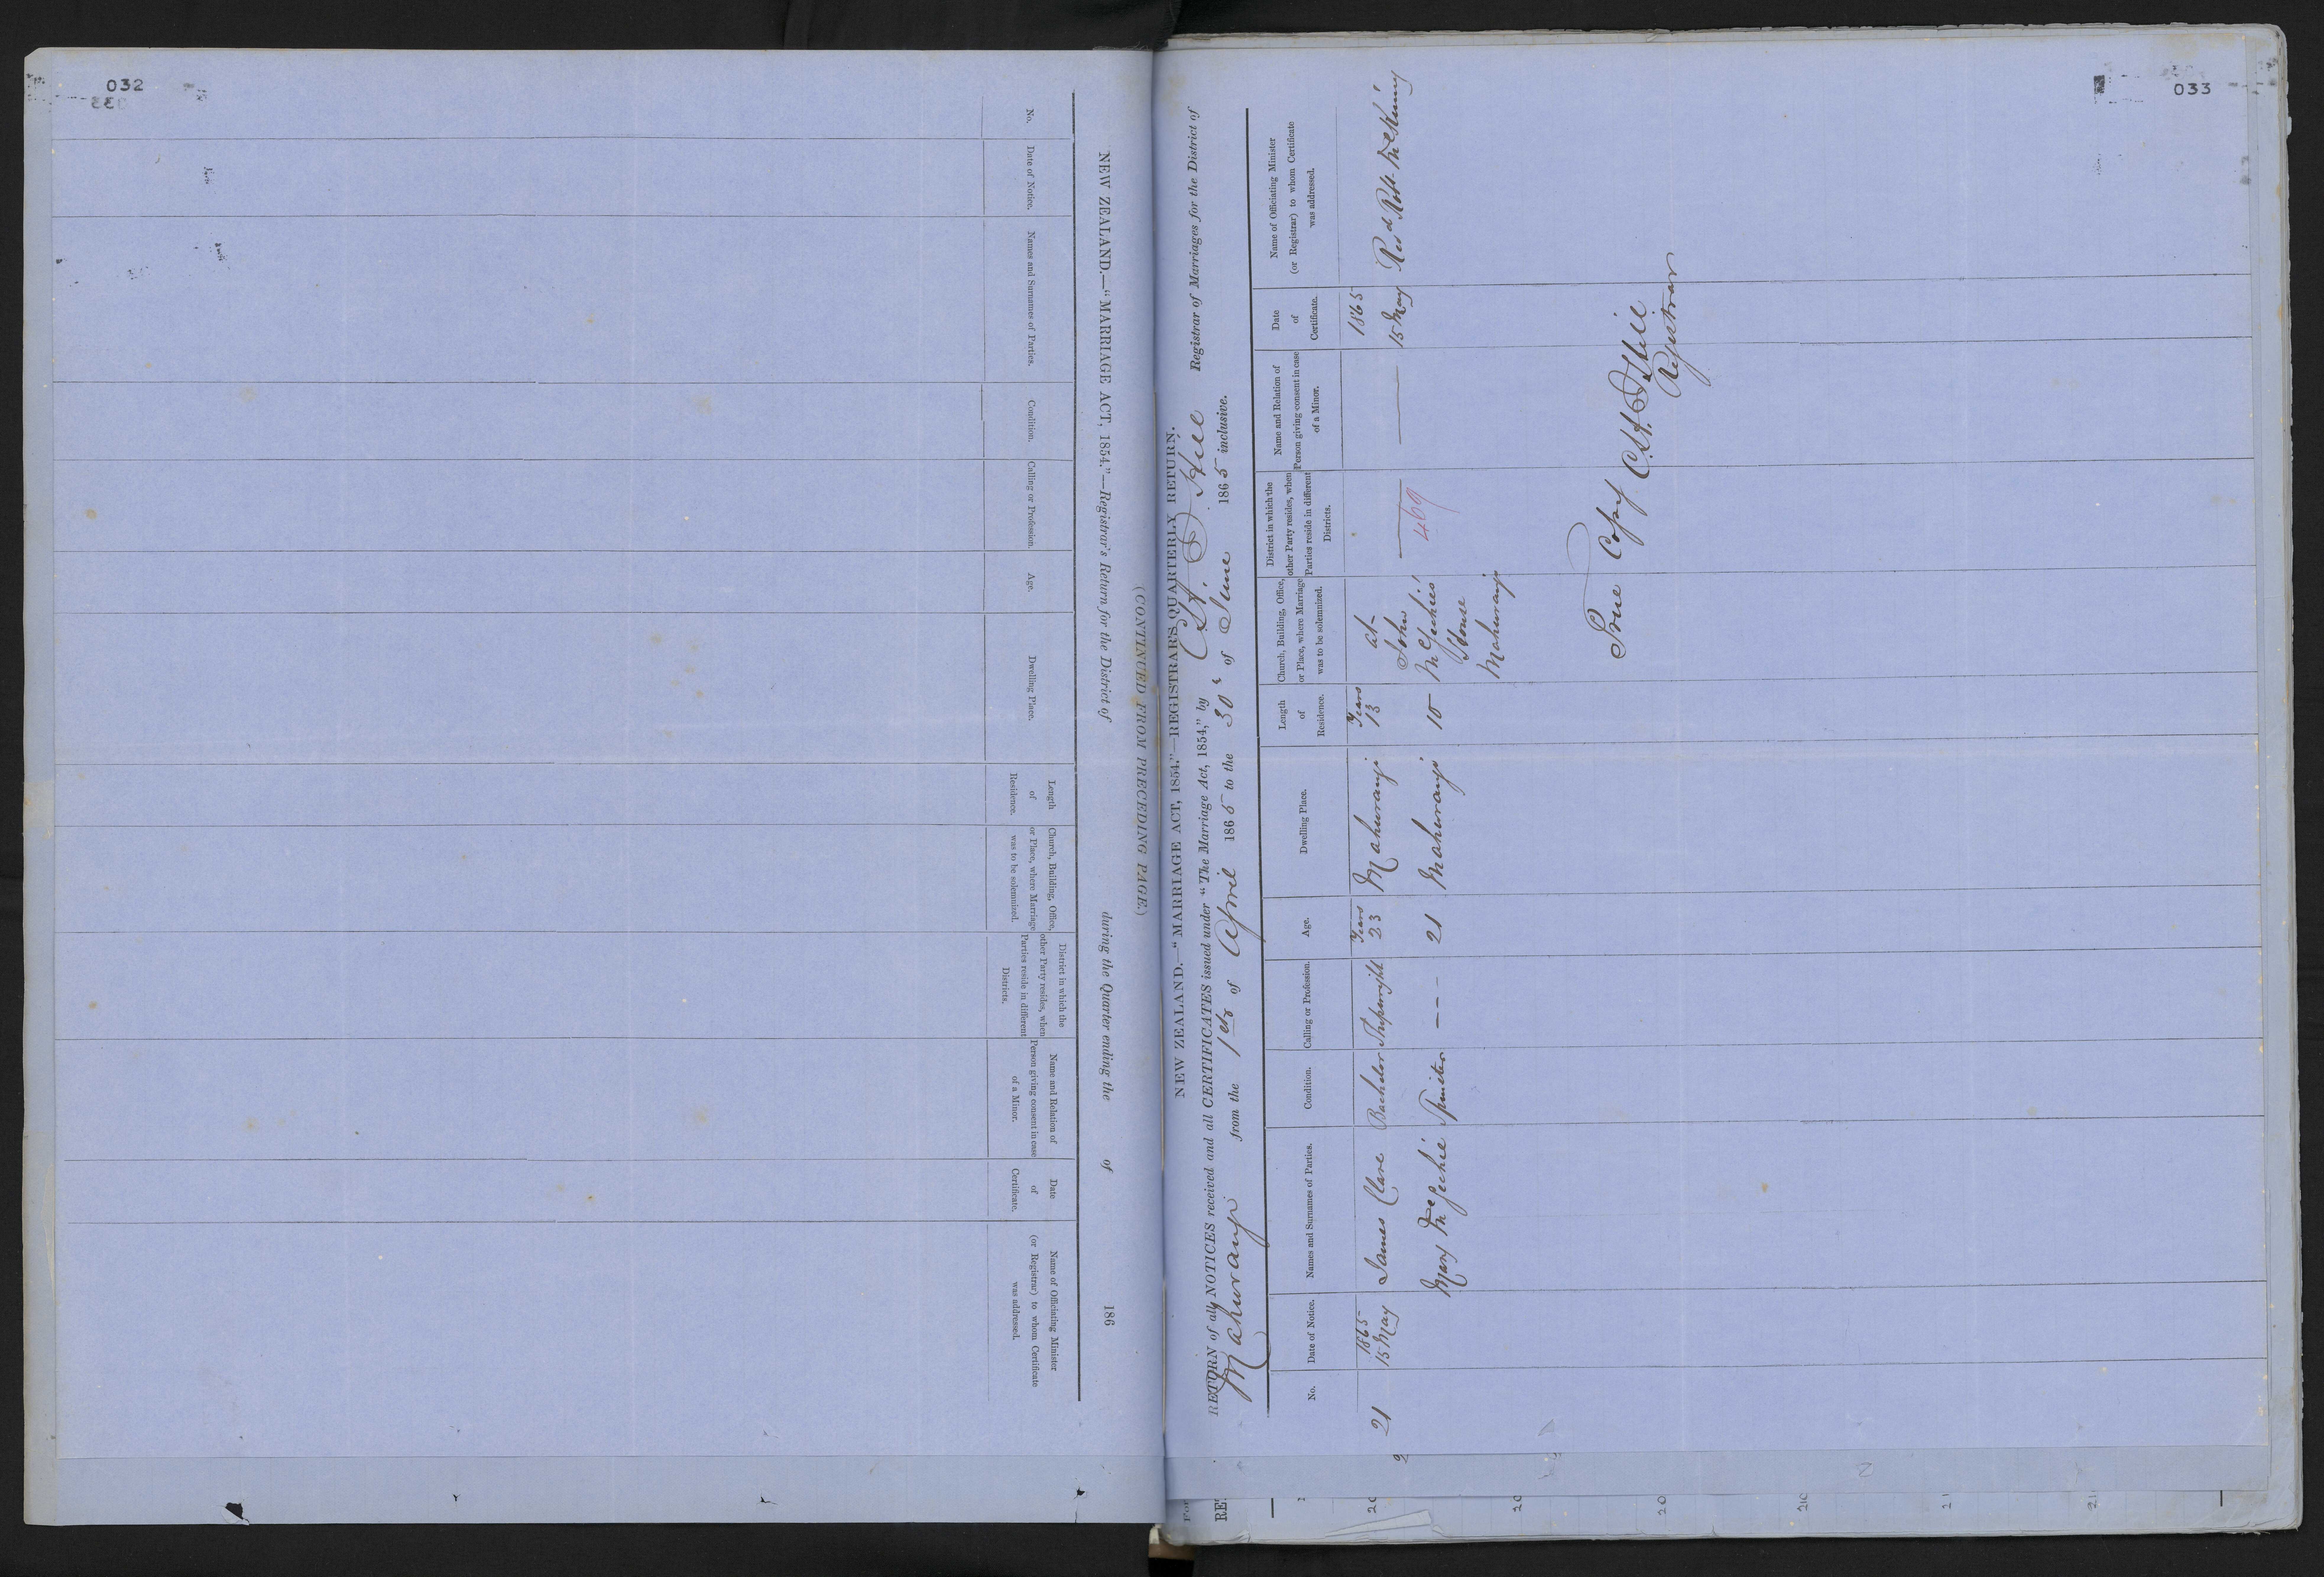 032
NEW ZEALAND.—"MARRIAGE ACT, 1854."—Registrar's Return for the District of during the Quarter ending the of 186
(CONTINUED FROM PRECEDING PAGE.)
No.
Date of Notice.
Names and Surnames of Parties.
Condition.
Calling or Profession.
Age.
Dwelling Place.
Length
of
Residence.
Church, Building, Office,
or Place, where Marriage
was to be solemnized.
District in which the
other Party resides, when
Parties reside in different
Districts.
Name and Relation of
Person giving consent in case
of a Minor.
Date
of
Certificate.
Name of Officiating Minister
(or Registrar) to whom Certificate
was addressed.
033
NEW ZEALAND.—"MARRIAGE ACT, 1854."—REGISTRAR'S QUARTERLY RETURN.
RETURN of all NOTICES received and all CERTIFICATES issued under "The Marriage Act, 1854," by Registrar of Marriages for the District of
Mahurangi from the 1st of April 1865 to the 30th of June 1865 inclusive.
No.
Date of Notice.
Names and Surnames of Parties.
Condition.
Calling or Profession.
Age.
Dwelling Place.
Length
of
Residence.
Church, Building, Office,
or Place, where Marriage
was to be solemnized.
District in which the
other Party resides, when
Parties reside in different
Districts.
Name and Relation of
Person giving consent in case
of a Minor.
Date
of
Certificate.
Name of Officiating Minister
(or Registrar) to whom Certificate
was addressed.
21
1865
15 May
James Clare
Bachelor
Shipwright
Years
23
Mahurangi
Years
13
at
John
McGechie's
House
Mahurangi
469
1865
15 May
Revd Robt McKinney
Mary McGechie
Spinster
21
Mahurangi
10
True Copy
Registrar